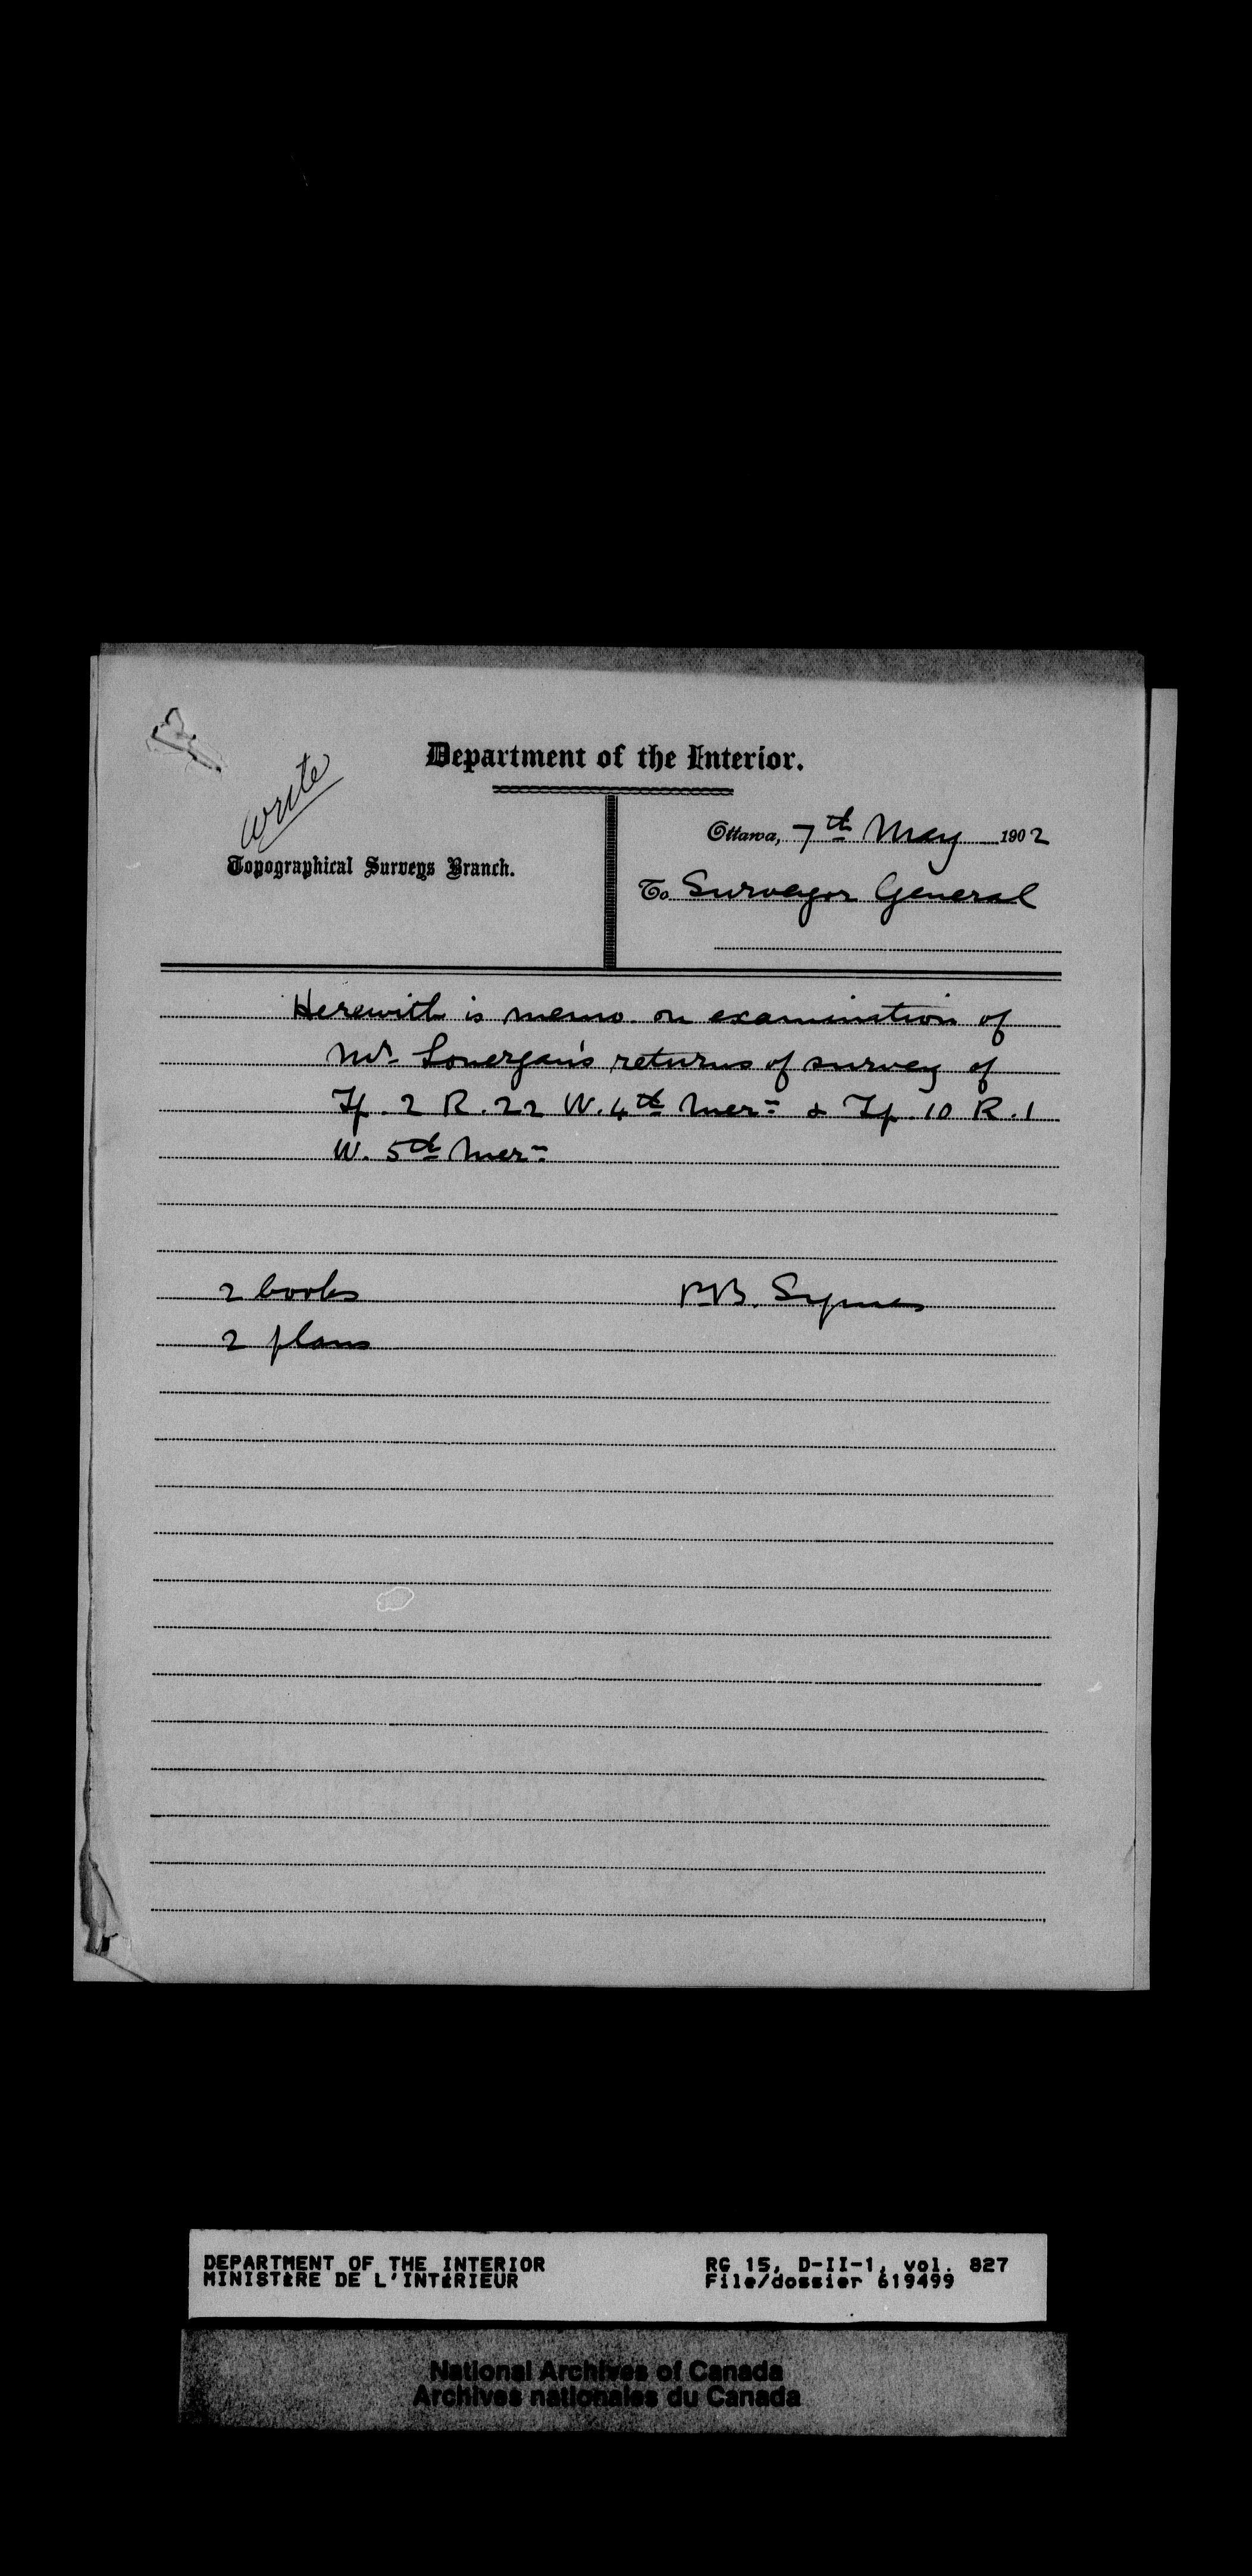 Department of the Interior.
write
Topographical Surveys Branch.
Ottawa, 7th May 1902
To Surveyor General
Herewith is memo on examination of
Mr. Lonergan's returns of survey of
Tp. 2 R. 22 W. 4th Mer. & Tp. 10 R. 1
W. 5th Mer.
2 books
Symes
2 plans
DEPARTMENT OF THE INTERIOR RG 15, D-II-1, vol. 827
MINISTÈRE DE L'INTÉRIEUR File/dossier 619499
National Archives of Canada
Archives nationales du Canada